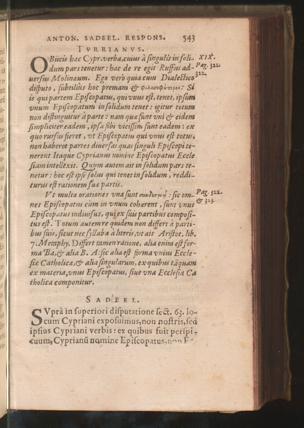 ANTON. SADEEL. RESPONS. 543
TVRRIANVS.
OBiicis hac Cypr. verba, cuius à singulis in soli- XIX.
dum pars tenetur: hac de re egit Ruffus ad- Pag. 321.
uersus Molinaum. Ego verò qua cum Dialectico 322.
disputo, subtilius hoc premam & : Si
is qui partem Episcopatus, qui vnus est, tenet, ipsum
vnum Episcopatum in solidum tenet: igitur totum
non distinguitur à parte: nam quæ sunt vni & eidem
simpliciter eadem, ipsa sibi vicissim sunt eadem: ex
quo rursus fieret, vt Episcopatus qui vnus est totus,
non haberet partes diuersas quas singuli Episcopi te-
nerent itaque Cyprianus nomine Episcopatus Eccle
siam intellexit. Quum autem ait in solidum pars te-
netur: hoc est ipsi soli qui tenet in solidum, reddi-
turus est rationem suæ partis.
Vt multa orationes vna sunt : sic om- Pag. 322.
nes Episcopatus cùm in vnum coherent, sunt vnus & 323.
Episcopatus indiuisus, qui ex suis partibus composi-
tus est. Totum autem quodam non differt à parti-
bus suis, sicut nec syllaba à literis, vt ait Aristot. lib.
7. Metaphy. Differt tamen ratione. alia enim est for-
ma Ba, & alia B. A: sic alia est forma vnius Eccle-
siæ Catholicæ, & alia singularium, ex quibus tāquam
ex materia, vnus Episcopatus, siue vna Ecclesia Ca
tholica componitur.
SADEEL.
SVprà in superiori disputatione sect. 63. lo-
cum Cypriani exposuimus, non nostris, sed
ipsius Cypriani verbis: ex quibus fuit perspi-
cuum, Cyprianū nomine Episcopatus, non